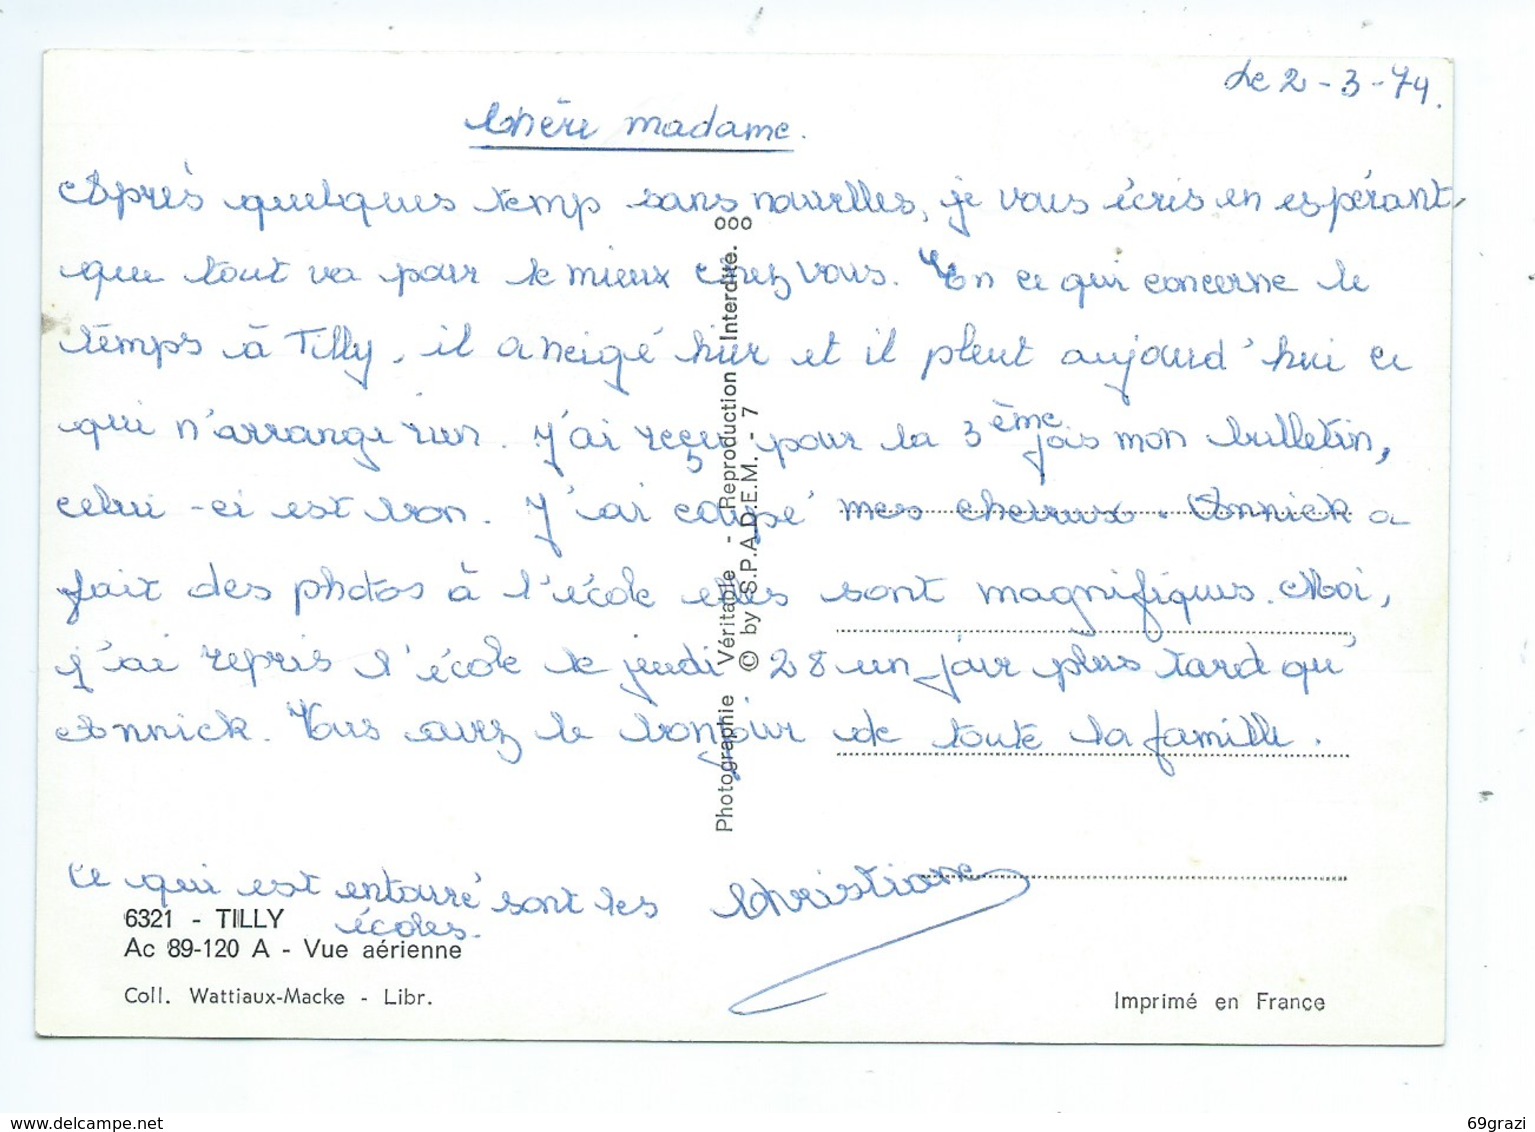 Le 2-3-74.
Chère madame.
Après quelques temp sans nouvelles, je vous écris en espérant,
que tout va pour le mieux chez vous. En ce qui concerne le
temps à Tilly, il a neigé hier et il pleut aujourd'hui ce
qui n'arrange rien. J'ai reçu pour la 3ème fois mon bulletin,
celui-ci est bon. J'ai coupé mes cheveux. Annick a
fait des photos à l'école elles sont magnifiques. Moi,
j'ai repris l'école le jeudi 28 un jour plus tard qu'
Annick. Vous avez le bonjour de toute la famille.
Ce qui est entouré sont les
écoles.
Christiane
6321 - TILLY
Ac 89-120 A - Vue aérienne
Coll. Wattiaux-Macke - Libr.
Photographie Véritable - Reproduction Interdite.
© by S.P.A.D.E.M. - 7
ooo
Imprimé en France
www.delcampe.net
69grazi